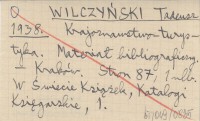 Q WILCZYŃSKI Tadeusz
1938. Krajoznawstwo turys-
tyka. Materiał bibliograficzny.
Kraków. Stron 87, 1 nlb.
W Świecie Książek, Katalogi
Księgarskie, 1.